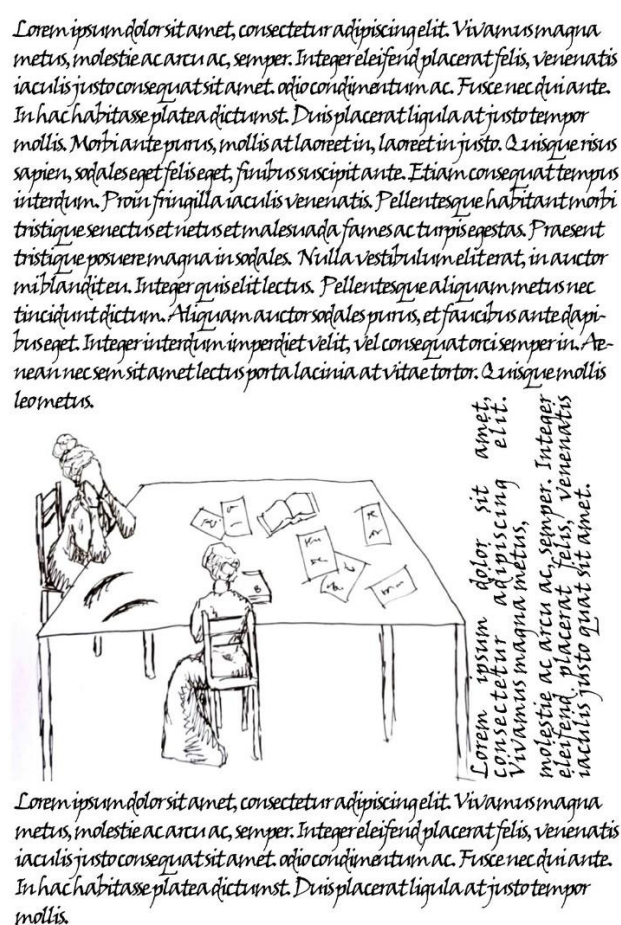 Lorem ipsum dolor sit amet, consectetur adipiscing elit. Vivamus magna
metus, molestie ac arcu ac, semper. Integer eleifend placerat felis, venenatis
iaculis justo consequat sit amet. odio condimentum ac. Fusce nec dui ante.
In hac habitasse platea dictumst. Duis placerat ligula at justo tempor
mollis. Morbi ante purus, mollis at laoreet in, laoreet in justo. Quisque risus
sapien, sodales eget felis eget, finibus suscipit ante. Etiam consequat tempus
interdum. Proin fringilla iaculis venenatis. Pellentesque habitant morbi
tristique senectus et netus et malesuada fames ac turpis egestas. Praesent
tristique posuere magna in sodales. Nulla vestibulum elit erat, in auctor
mi blandit eu. Integer quis elit lectus. Pellentesque aliquam metus nec
tincidunt dictum. Aliquam auctor sodales purus, et faucibus ante dapi-
bus eget. Integer interdum imperdiet velit, vel consequat orci semper in. Ae-
nean nec sem sit amet lectus porta lacinia at vitae tortor. Quisque mollis
leo metus.
Lorem ipsum dolor sit amet,
consectetur adipiscing elit.
Vivamus magna metus,
molestie ac arcu ac, semper. Integer
eleifend placerat felis, venenatis
iaculis justo quat sit amet.
Lorem ipsum dolor sit amet, consectetur adipiscing elit. Vivamus magna
metus, molestie ac arcu ac, semper. Integer eleifend placerat felis, venenatis
iaculis justo consequat sit amet. odio condimentum ac. Fusce nec dui ante.
In hac habitasse platea dictumst. Duis placerat ligula at justo tempor
mollis.